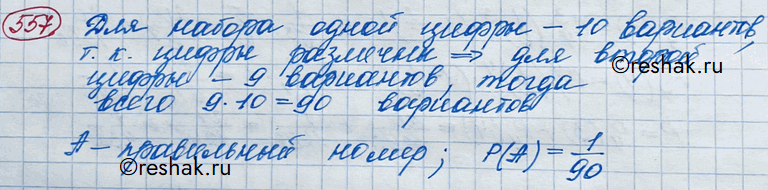 557. Для набора одной цифры – 10 вариантов,
т. к. цифры различны ⇒ для второй
цифры – 9 вариантов, тогда
всего 9·10=90 вариантов
©reshak.ru
A – правильный номер; P(A) = 1/90
©reshak.ru
©reshak.ru